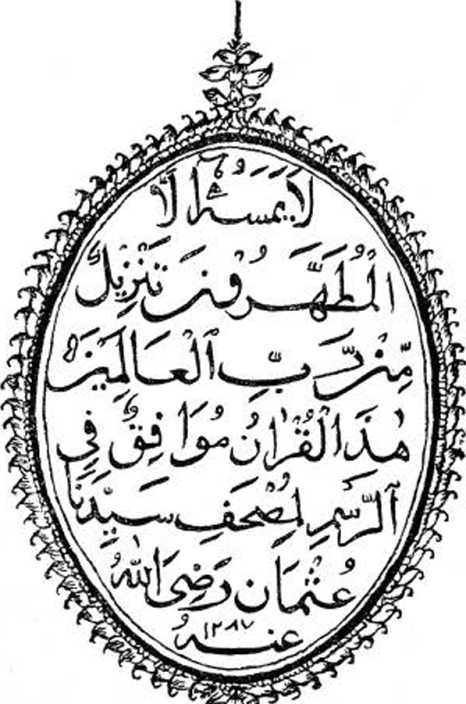 لَا يَمَسُّهُ إِلَّا
الْمُطَهَّرُونَ تَنْزِيلٌ
مِّن رَّبِّ الْعَالَمِينَ
هٰذَا الْقُرْاٰنُ مُوَافِقٌ فِي
الرَّسْمِ لِمُصْحَفِ سَيِّدِنَا
عُثْمَان رَضِىَ اللهُ
عنه ١٢٨٧